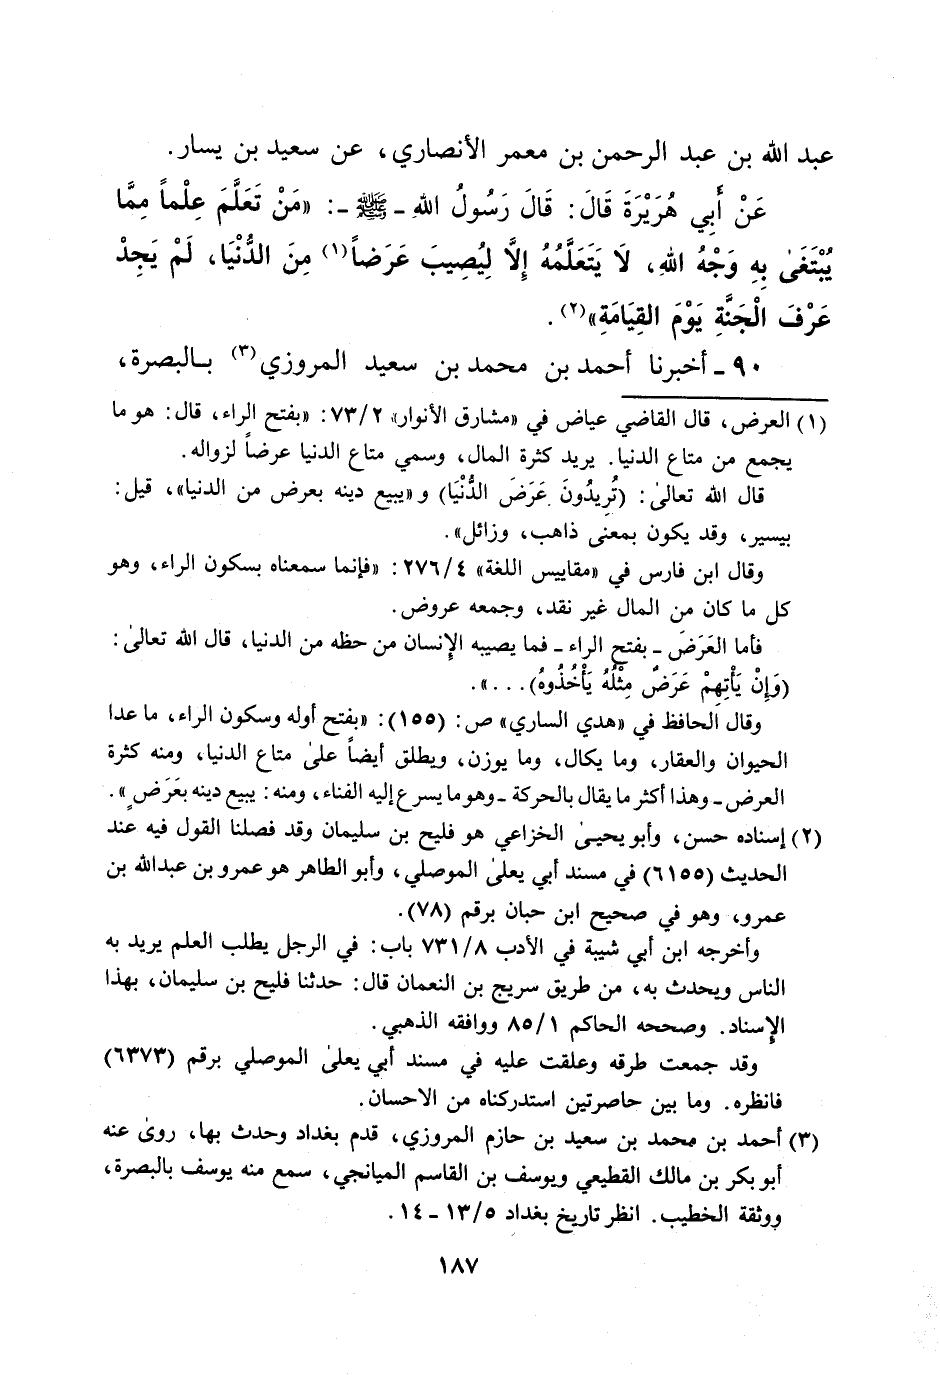 عبد الله بن عبد الرحمن بن معمر الأنصاري، عن سعيد بن يسار.
عَنْ أَبِي هُرَيْرَةَ قَالَ: قَالَ رَسُولُ اللهِ - ﷺ -: «مَنْ تَعَلَّمَ عِلْماً مِمَّا
يُبْتَغَىٰ بِهِ وَجْهُ اللهِ، لَا يَتَعَلَّمُهُ إِلَّا لِيُصِيبَ عَرَضاً(١) مِنَ الدُّنْيَا، لَمْ يَجِدْ
عَرْفَ الْجَنَّةِ يَوْمَ القِيَامَةِ»(٢).
٩٠ - أخبرنا أحمد بن محمد بن سعيد المروزي(٣) بالبصرة،
(١) العرض، قال القاضي عياض في «مشارق الأنوار» ٧٣/٢: «بفتح الراء، قال: هو ما
يجمع من متاع الدنيا. يريد كثرة المال، وسمي متاع الدنيا عرضاً لزواله.
قال الله تعالىٰ: (تُرِيدُونَ عَرَضَ الدُّنْيَا) و «يبيع دينه بعرض من الدنيا»، قيل:
بيسير، وقد يكون بمعنى ذاهب، وزائل».
وقال ابن فارس في «مقاييس اللغة» ٢٧٦/٤: «فإنما سمعناه بسكون الراء، وهو
كل ما كان من المال غير نقد، وجمعه عروض.
فأما العَرَضَ - بفتح الراء - فما يصيبه الإنسان من حظه من الدنيا، قال الله تعالىٰ:
(وَإِنْ يَأْتِهِمْ عَرَضٌ مِثْلُهُ يَأْخُذُوهُ)...».
وقال الحافظ في «هدي الساري» ص: (١٥٥): «بفتح أوله وسكون الراء، ما عدا
الحيوان والعقار، وما يكال، وما يوزن، ويطلق أيضاً علىٰ متاع الدنيا، ومنه كثرة
العرض - وهذا أكثر ما يقال بالحركة - وهو ما يسرع إليه الفناء، ومنه: يبيع دينه بعَرَضٍ».
(٢) إسناده حسن، وأبو يحيىٰ الخزاعي هو فليح بن سليمان وقد فصلنا القول فيه عند
الحديث (٦١٥٥) في مسند أبي يعلىٰ الموصلي، وأبو الطاهر هو عمرو بن عبدالله بن
عمرو، وهو في صحيح ابن حبان برقم (٧٨).
وأخرجه ابن أبي شيبة في الأدب ٧٣١/٨ باب: في الرجل يطلب العلم يريد به
الناس ويحدث به، من طريق سريج بن النعمان قال: حدثنا فليح بن سليمان، بهذا
الإسناد. وصححه الحاكم ٨٥/١ ووافقه الذهبي.
وقد جمعت طرقه وعلقت عليه في مسند أبي يعلىٰ الموصلي برقم (٦٣٧٣)
فانظره. وما بين حاصرتين استدركناه من الاحسان.
(٣) أحمد بن محمد بن سعيد بن حازم المروزي، قدم بغداد وحدث بها، روىٰ عنه
أبو بكر بن مالك القطيعي ويوسف بن القاسم الميانجي، سمع منه يوسف بالبصرة،
ووثقة الخطيب. انظر تاريخ بغداد ١٣/٥ - ١٤.
١٨٧